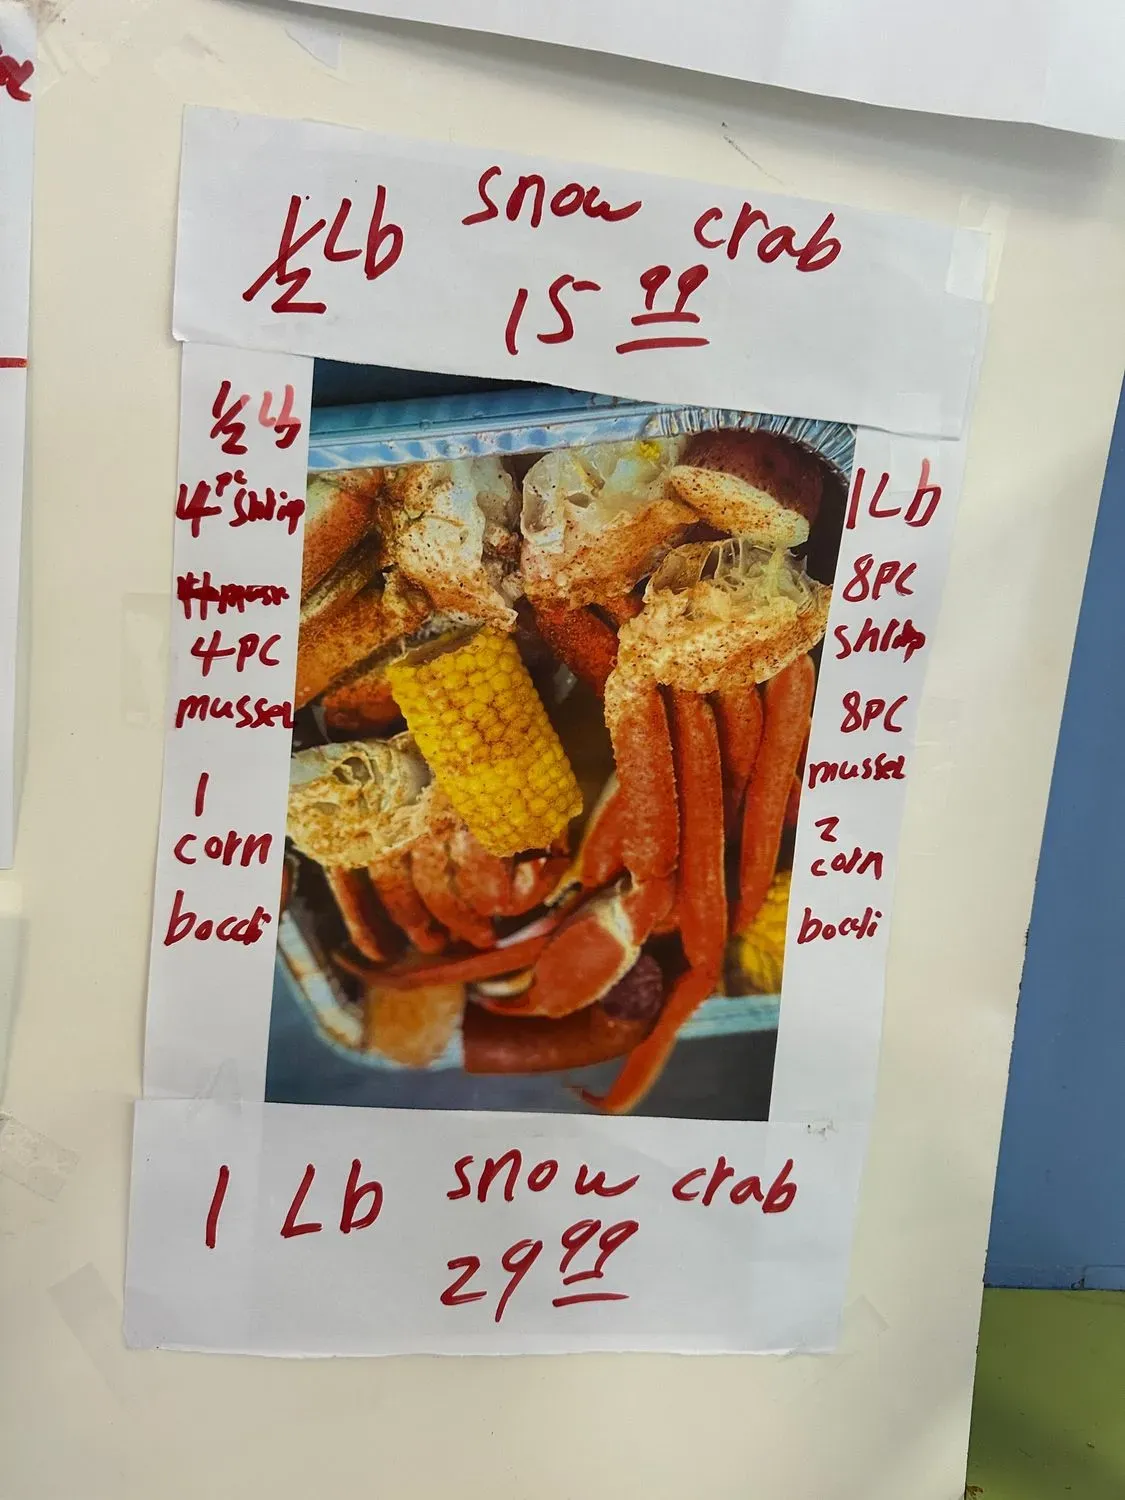 ½ Lb snow crab
15 99
½ Lb
4 PC Shrimp
4 PC
mussel
1
corn
boccli
1 Lb
8 PC
shrimp
8 PC
mussel
2
corn
boccli
1 Lb snow crab
29 99